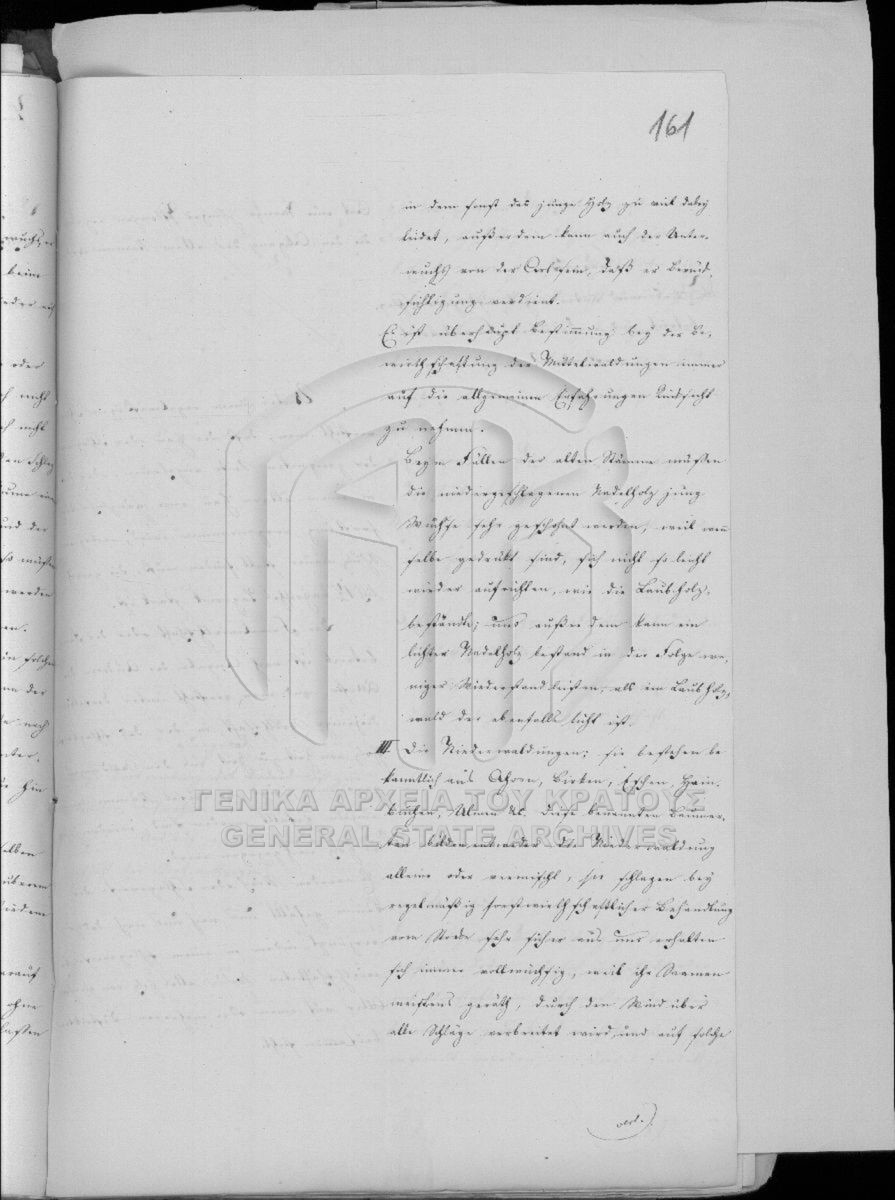 161
in dem sonst das junge Holz zu viel dabey
leidet, außerdem kann auch der Unter-
wuchs von der seyn, daß er Berück-
sichtigung verdient.
Es ist überhaupt Bestimmung bey der Be-
wirthschaftung der Mittelwaldungen immer
auf die allgemeinen Erfahrungen Rücksicht
zu nehmen.
Beym Fällen der alten Stämme müßen
die niedergeschlagenen Nadelholz jung
Wüchse sehr geschont werden, weil wenn
selbe gedrükt sind, sich nicht so leicht
wieder aufrichten, wie die Laubholz-
bestände; und außerdem kann ein
lichter Nadelholz bestand in der Folge we-
niger Wiederstand leisten, als ein Laubholz-
wald der ebenfalls licht ist.
III Die Niederwaldungen; sie bestehen be-
kanntlich aus Ahorn, Birken, Eschen, Hain-
buchen, Ulmen &c. diese benannten Baumar-
ten bilden entweder die Niederwaldung
alleine oder vermischt, sie schlagen bey
regelmäßig forstwirthschaftlicher Behandlung
vom Stocke sehr sicher aus und erhalten
sich immer vollwüchsig, weil ihr Saamen
meistens geräth, durch den Wind über
alle Schläge verbreitet wird, und auf solche
ΓΕΝΙΚΑ ΑΡΧΕΙΑ ΤΟΥ ΚΡΑΤΟΥΣ
GENERAL STATE ARCHIVES